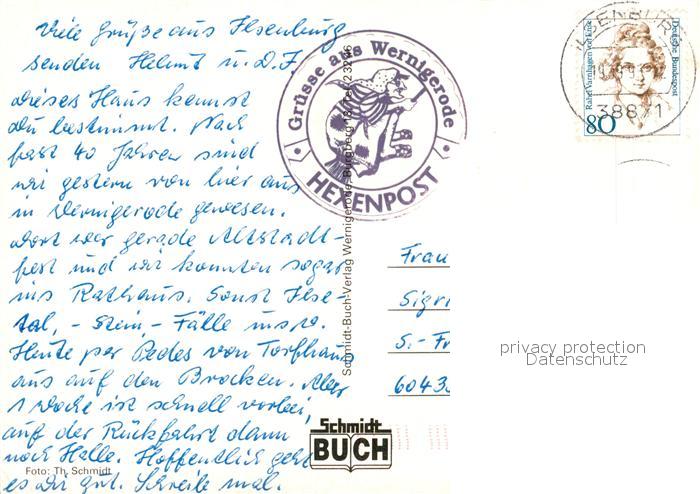 Viele Grüße aus Ilsenburg
senden Helmut u. D. F.
dieses Haus kennst
du bestimmt. Nach
fast 40 Jahren sind
wir gestern von hier aus
in Wernigerode gewesen.
Dort war gerade Altstadt-
fest und wir konnten sogar
ins Rathaus. Sonst Ilse-
tal, - Stein, - Fälle usw.
Heute per Pedes von Torfhaus
aus auf den Brocken. Aber
1 Woche ist schnell vorbei,
auf der Rückfahrt dann
nach Halle. Hoffentlich geht
es dir gut. Schreibe mal.
Foto: Th. Schmidt
Grüsse aus Wernigerode
HEXENPOST
Schmidt-Buch-Verlag Wernigerode, Burgberg
Schmidt
BUCH
ILSENBURG
38871
Deutsche Bundespost
Rahel Varnhagen von Ense
80
Frau
Sigri
S.-Fr
6043
privacy protection
Datenschutz